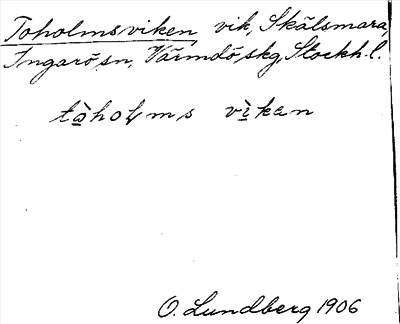 Toholmsviken, vik, Skälsmara,
Ingarö sn, Värmdö skg, Stockh. l.
tòholms vìkan
O. Lundberg 1906